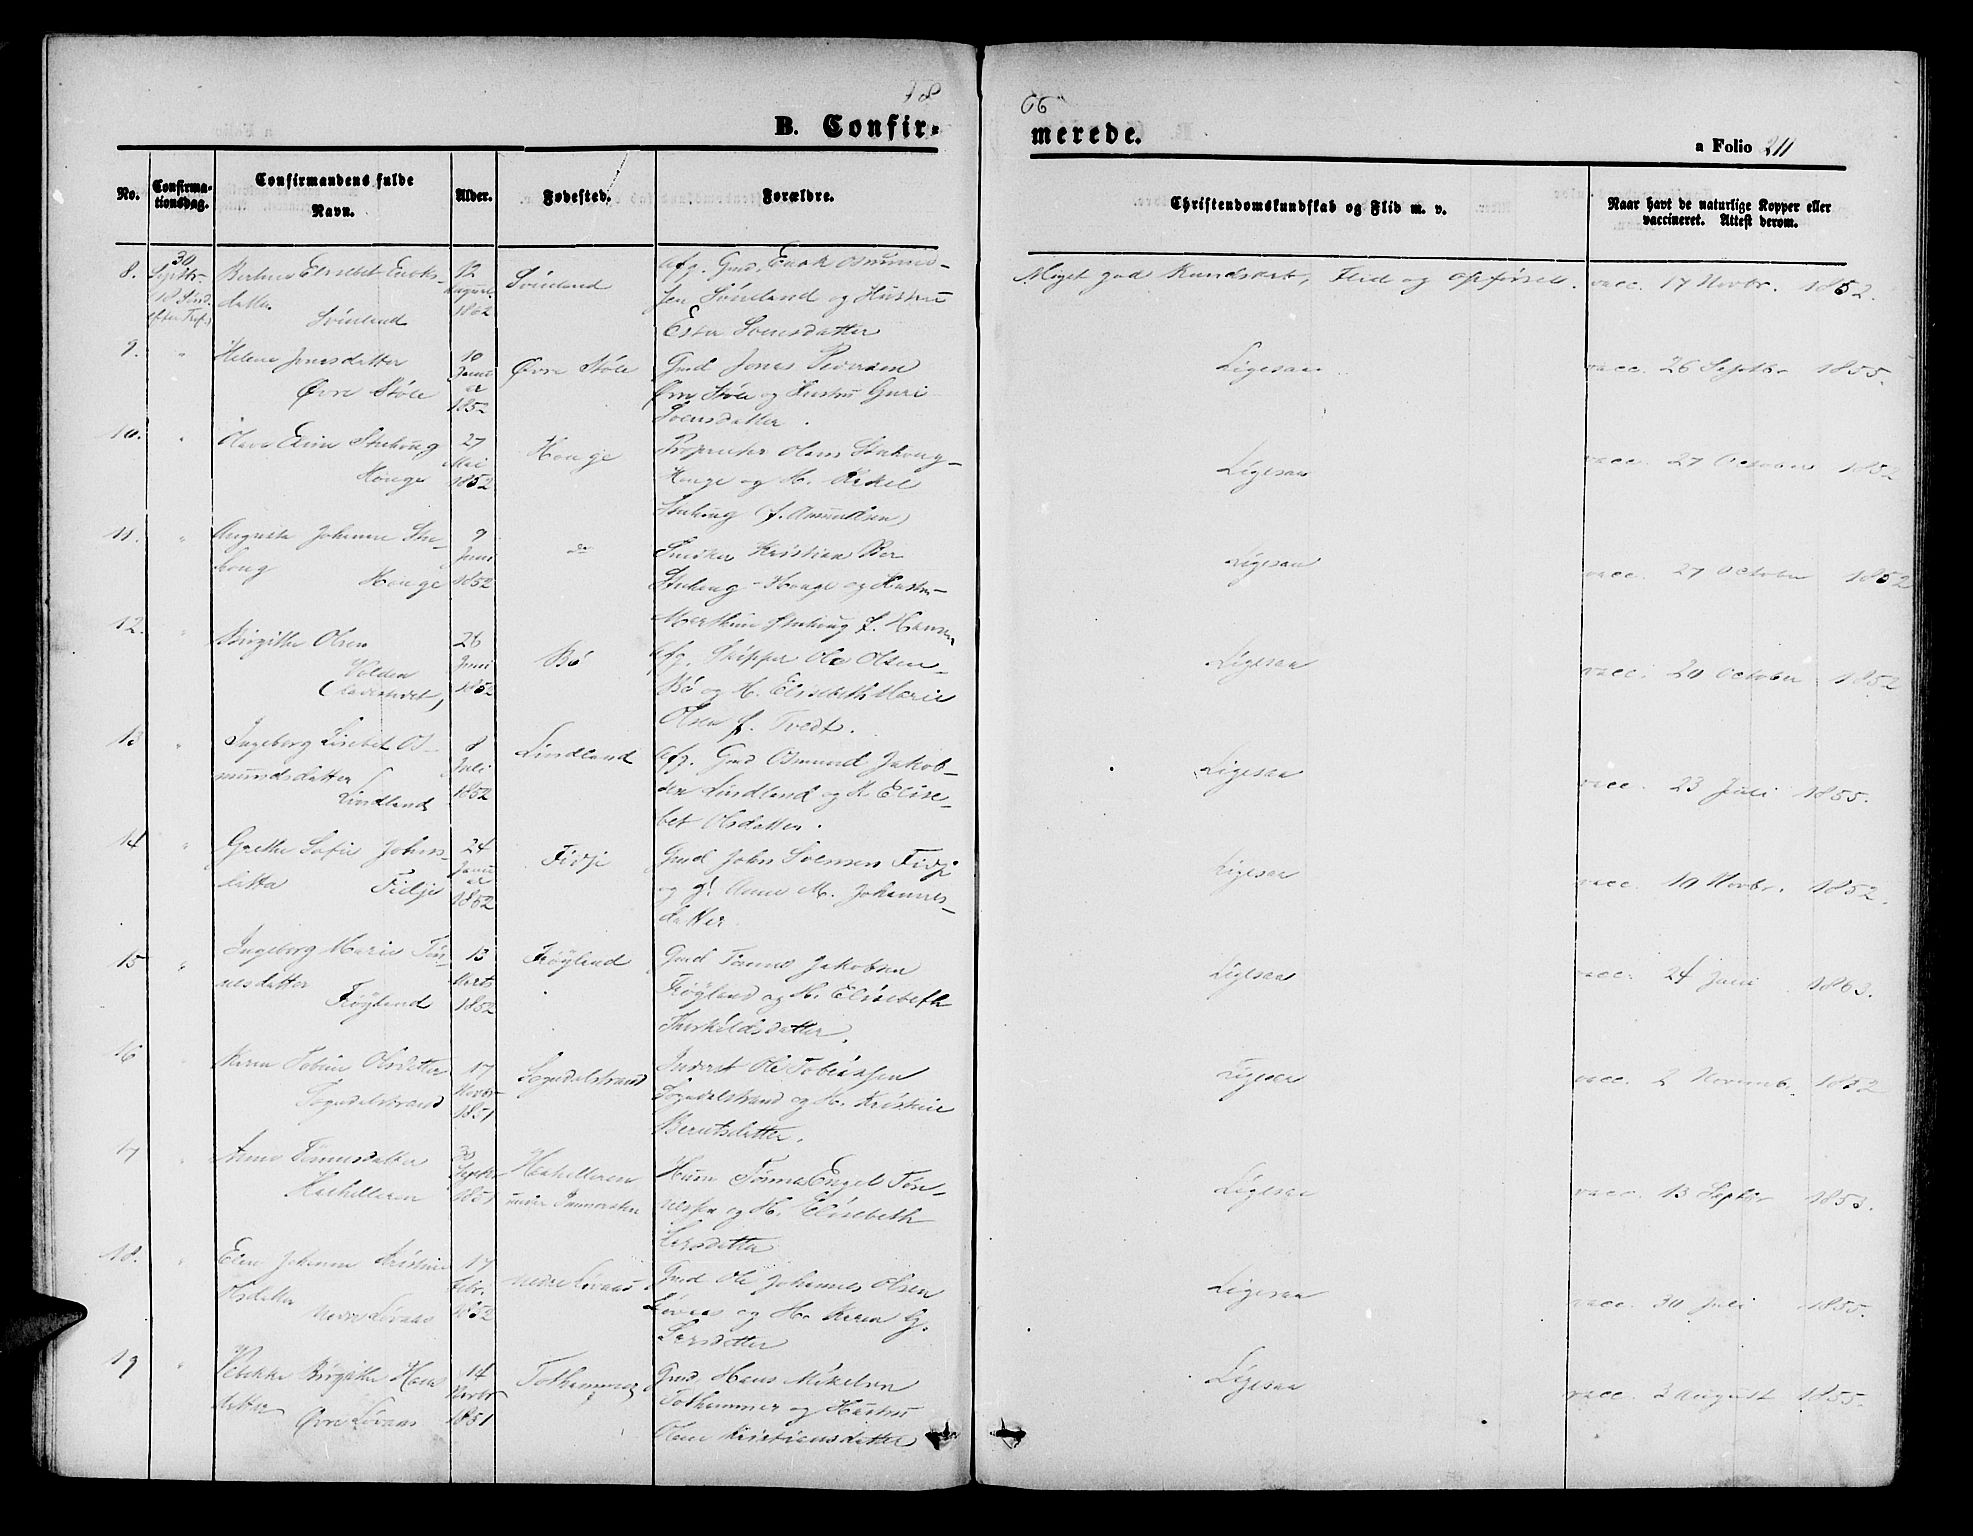 18
66
B. Confir-
merede.
a Folio 211
No.
Confirma-
tionsdag.
Confirmandens fulde
Navn.
Alder.
Fødested.
Forældre.
Christendomskundskab og Flid m. v.
Naar havt de naturlige Kopper eller
vaccineret. Attest derom.
8.
30
Septbr
18 Sønd.
efter Tref.
Elisebet Enoks-
datter
12
August
1852
afg. Gmd. Enok Asmunds-
sen og Hustru
Ester Svensdatter
Meget god Kundskab, Flid og Opførsel.
vacc. 17 Novbr. 1852.
9. "
Helene Jonasdatter
Øvre Støle
10
Janu
ar
1852
Øvre Støle
Gmd Jonas Pedersen
Øvre Støle og Hustru Guri
Svensdatter.
Ligesaa
vacc. 26 Septbr 1855.
10. "
Hauge
27
Mai
1852
Hauge
Hauge og H. Rakel
(f. Amundsen)
Ligesaa
vacc. 27 October 1852
11. "
Augusta Johanne
Hauge
9
Juni
1852
do
Snedker Kristian
Hauge og Hustru
f. Hansen
Ligesaa
vacc. 27 October 1852
12. "
Birgithe Olsen
Volden
(Ladestedet)
26
Juni
1852
Bø
afg. Skipper Ole Olsen
Bø og H. Elisebeth Marie
Olsen f. Tvedt.
Ligesaa
vacc. 20 October 1852
13 "
Ingeborg Lisebet As-
mundsdatter
Lindland
8
Juli
1852
Lindland
afg. Gmd Asmund Jakob-
sen Lindland og H. Elise-
bet Olsdatter.
Ligesaa
vacc. 23 Juli 1855.
14 "
Grethe Sofie Johns-
datter Fidje
24
Janu
ar
1852
Fidje
Gmd John Svensen Fidje
og Anne M. Johannes-
datter
Ligesaa
vacc. 10 Novbr. 1852.
15 "
Ingeborg Marie Tøn-
nesdatter
Frøyland
13
Marts
1852
Frøyland
Gmd Tønnes Jakobsen
Frøyland og H. Elisebeth
Thorkildsdatter.
Ligesaa
vacc. 24 Juli 1863.
16
Karen Tobine Olsdatter
Sogndalstrand
17
Novbr
1851
Sogndalstrand
Inderst Ole Tobiassen
Sogndalstrand og H. Kristine
Berntsdatter.
Ligesaa
vacc. 2 Novemb. 1852
17
Anne Tønnesdatter
Haahelleren
30
Septbr
1851
Haahelleren
under
Huusm. Tønnes Engel Tøn-
nessen og H. Elisebeth
Larsdatter
Ligesaa
vacc. 13 Septbr 1853.
18. "
Elen Johanne Kristine
Olsdatter
Nedre Løvaas
17
Febr.
1852
Nedre Løvaas
Gmd Ole Johannes Olsen
Løvaas og H. Karen G.
Larsdatter
Ligesaa
vacc. 30 Juli 1855.
19 "
Rebekka Birgitha Hans
datter
Øvre Løvaas
14
Novbr
1851
Tothammer
Gmd. Hans Mikelsen
Tothammer og Hustru
Olene Kristiansdatter
Ligesaa
vacc. 2 August 1855.